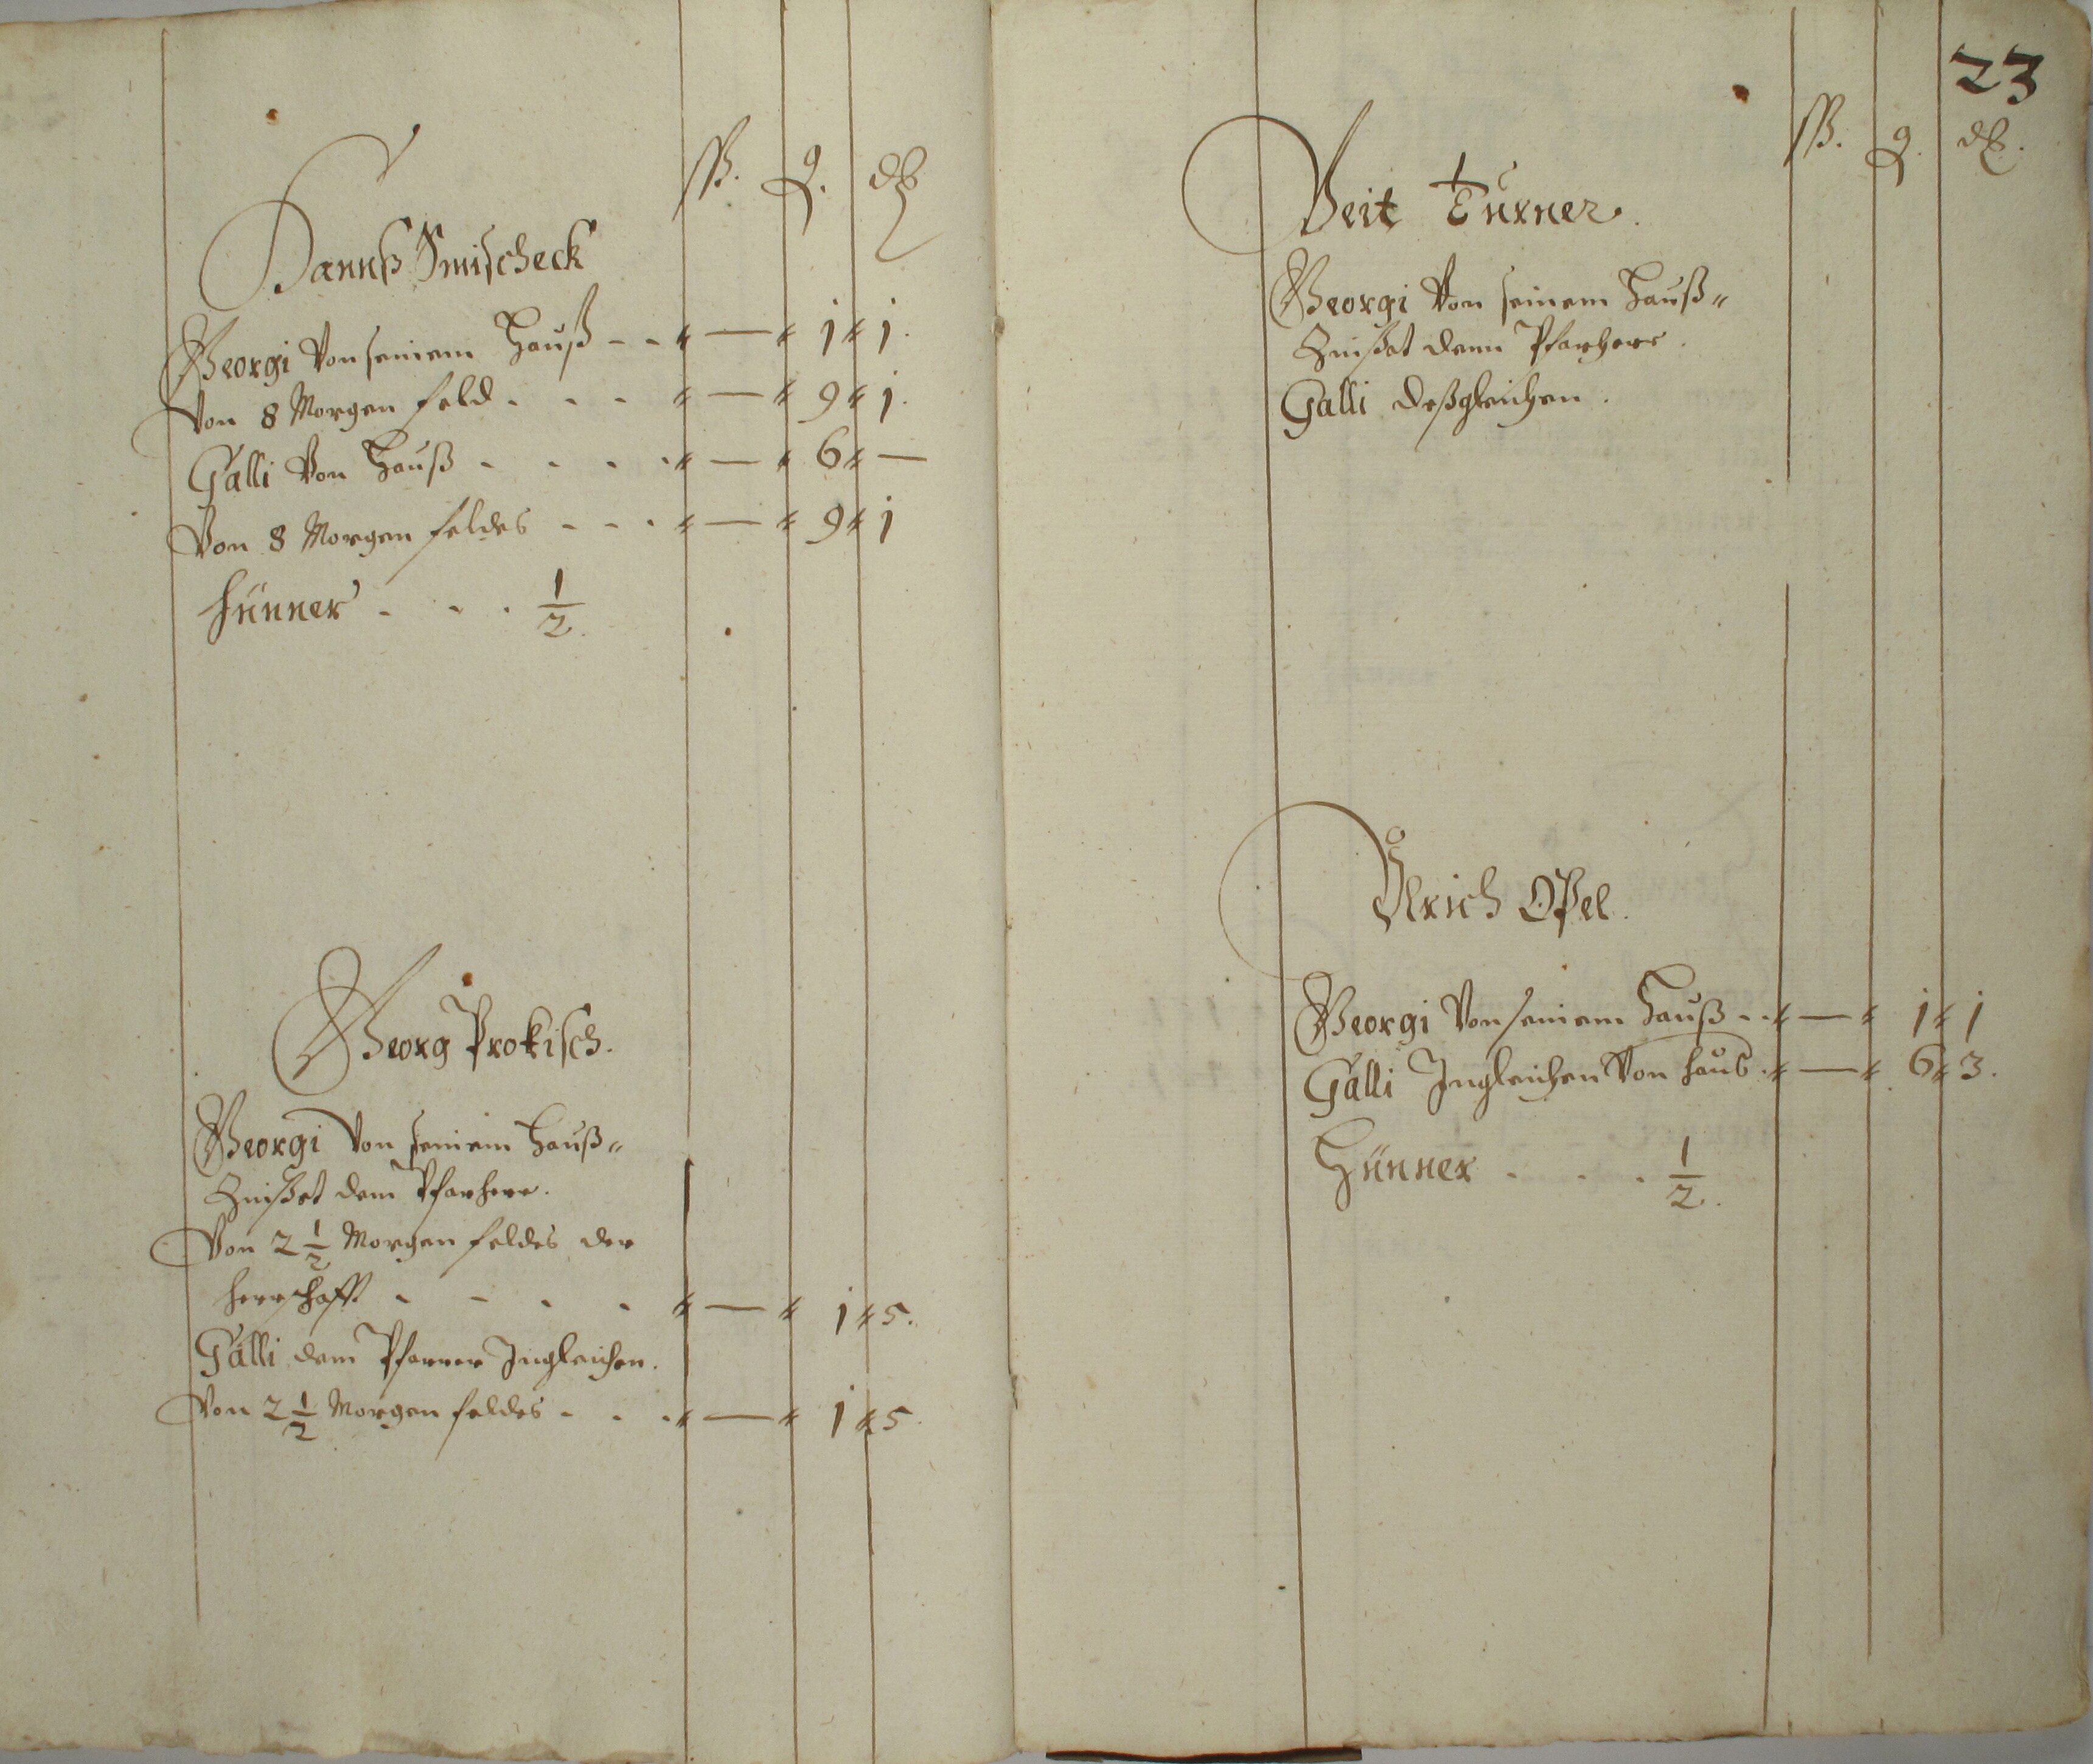 ßß. g. d₰
Hannß Smischeck
Georgi Von seinem Hauß - - " — " 1 " 1.
Von 8 Morgen feld . . . " — " 9 " 1.
Galli Von Hauß - . . . " — " 6 " —
Von 8 Morgen feldes - - . " — " 9 " 1
hünner - . . 1/2.
Georg Prokisch.
Georgi Von seinem Hauß"
Zinßet dem Pfarherr.
Von 2 1/2 Morgen feldes der
herrschafft - - . . " — " 1 " 5.
Galli dem Pfarrer Ingleichen.
Von 2 1/2 Morgen feldes - . . " — " 1 " 5.
23
ßß. g. d₰.
Veit Turner.
Georgi Von seinem Hauß"
Zinßet dem Pfarherr.
Galli deßgleichen.
Ulrich Opel.
Georgi Von seinem Hauß - . " — " 1 " 1
Galli Ingleichen Von hauß . " — " 6 " 3.
Hünner . . . 1/2.